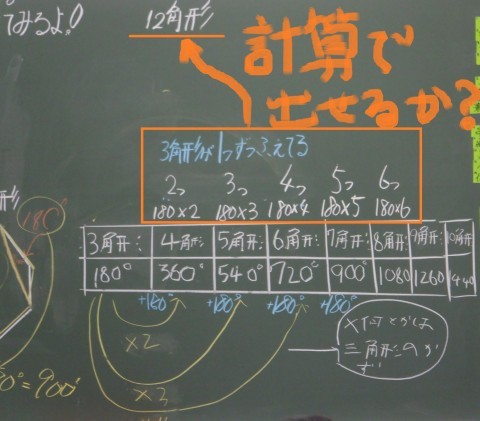 てみるよ!
12角形
計算で
出せるか?
3角形が1つずつふえてる
2つ 3つ 4つ 5つ 6つ
180×2 180×3 180×4 180×5 180×6
3角形 4角形 5角形 6角形 7角形 8角形 9角形 10角形
180° 360° 540° 720° 900° 1080 1260 1440
+180° +180° +180° +180°
×2
×3
×何とかは
三角形のか
ず
形
180°
0°=900°